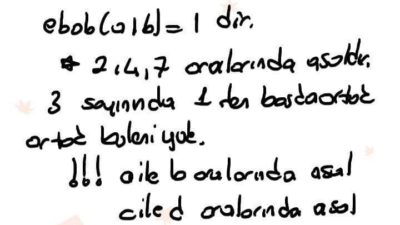 ebob(a,b)=1 dir.
* 2,4,7 aralarında asaldır.
3 sayınında 1 den başka ortak
ortak böleni yok.
!!! a ile b aralarında asal
c ile d aralarında asal